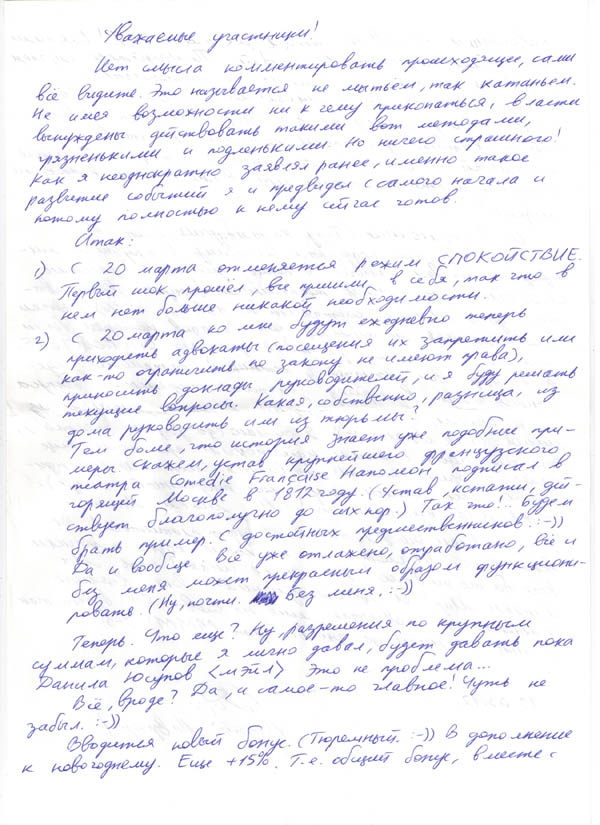 Уважаемые участники!
Нет смысла комментировать происходящее, сами
всё видите. Это называется не мытьем, так катаньем.
Не имея возможности ни к чему прикопаться, власти
вынуждены действовать такими вот методами,
грязненькими и подленькими. Но ничего страшного!
Как я неоднократно заявлял ранее, именно такое
развитие событий я и предвидел с самого начала и
потому полностью к нему сейчас готов.
Итак:
1) С 20 марта отменяется режим СПОКОЙСТВИЕ.
Первый шок прошёл, все пришли в себя, так что в
нем нет больше никакой необходимости.
2) С 20 марта ко мне будут ежедневно теперь
приходить адвокаты (посещения их запретить или
как-то ограничить по закону не имеют права),
приносить доклады руководителей, и я буду решать
текущие вопросы. Какая, собственно, разница, из
дома руководить или из тюрьмы?
Тем более, что история знает уже подобные при-
меры. Скажем, устав крупнейшего французского
театра Comédie Française Наполеон подписал в
горящей Москве в 1812 году. (Устав, кстати, дей-
ствует благополучно до сих пор.) Так что!.. Будем
брать пример с достойных предшественников. :-))
Да и вообще. Всё уже отлажено, отработано, всё и
без меня может прекрасным образом функциони-
ровать. (Ну, почти. Без меня. :-))
Теперь. Что еще? Ну, разрешения по крупным
суммам, которые я лично давал, будет давать пока
Данила Юсупов <мэйл> Это не проблема...
Всё, вроде? Да, и самое-то главное! Чуть не
забыл. :-))
Вводится новый бонус. (Тюремный. :-)) В дополнение
к новогоднему. Еще +15%. Т.е. общий бонус, вместе с